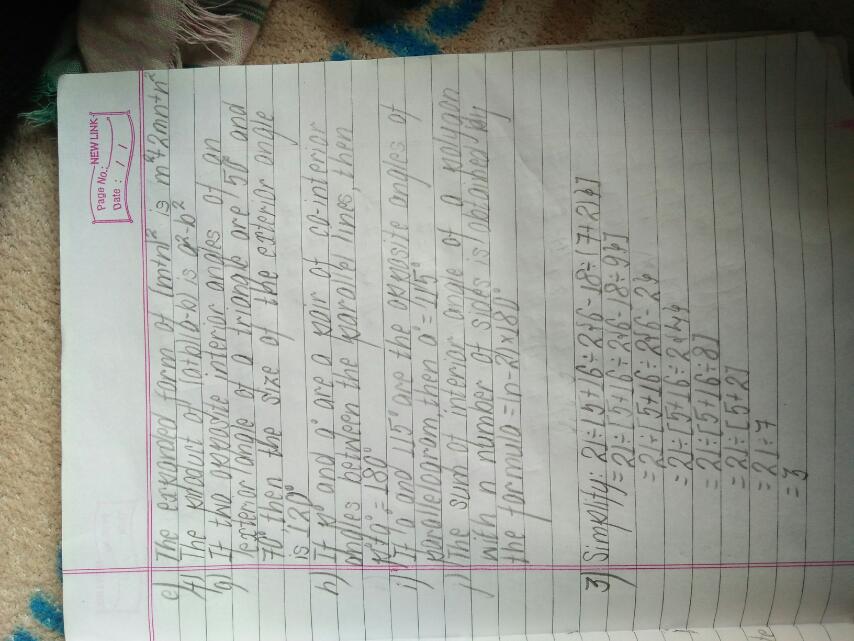 Page No.: NEW LINK
Date : / /
e) The expanded form of (m+n)² is m²+2mn+n²
f) The product of (a+b)(a-b) is a²-b²
g) If two opposite interior angles of an
exterior angle of a triangle are 50° and
70° then the size of the exterior angle
is 120°
h) If p° and q° are a pair of co-interior
angles between the parallel lines, then
p°+q° = 180°
i) If a and 115° are the opposite angles of
parallelogram, then a° = 115°
j) The sum of interior angle of a polygon
with n number of sides is obtained by
the formula = (n-2)×180°
3) Simplify: 21÷[5+16÷2{6-18÷(7+2)}]
= 21÷[5+16÷2{6-18÷9}]
= 21÷[5+16÷2{6-2}]
= 21÷[5+16÷2{4}]
= 21÷[5+16÷8]
= 21÷[5+2]
= 21÷7
= 3